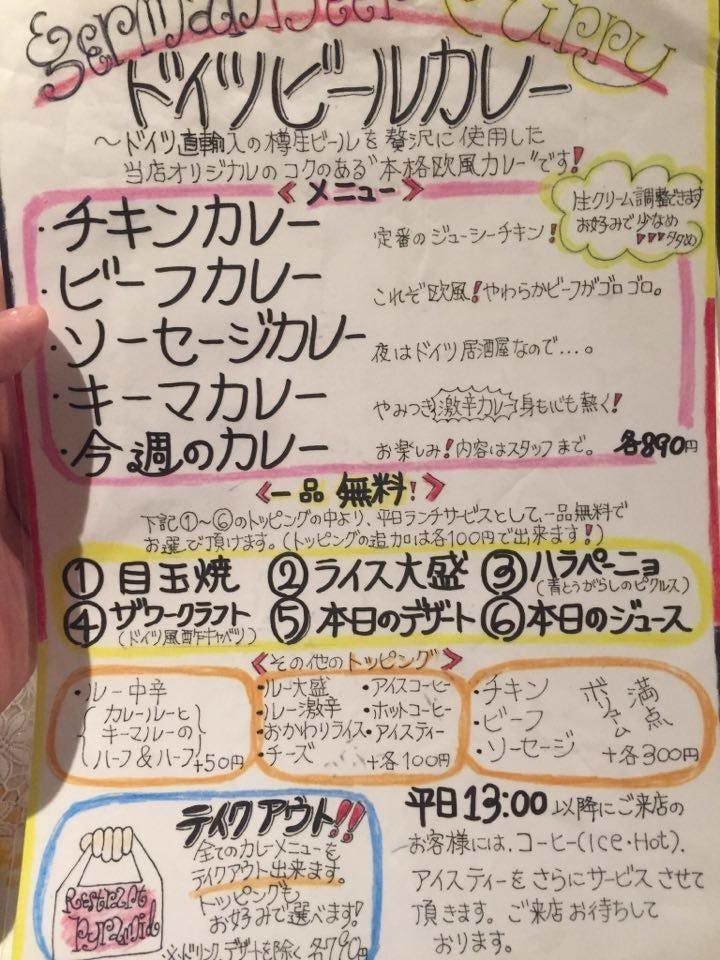 German Beer Curry
ドイツビールカレー
～ドイツ直輸入の樽生ビールを贅沢に使用した
当店オリジナルのコクのある"本格欧風カレー"です!
＜メニュー＞
生クリーム調整できます
お好みで少なめ
多め
・チキンカレー 定番のジューシーチキン!
・ビーフカレー これぞ欧風!やわらかビーフがゴロゴロ。
・ソーセージカレー 夜はドイツ居酒屋なので…。
・キーマカレー やみつき激辛カレー身も心も熱く!
・今週のカレー お楽しみ!内容はスタッフまで。 各890円
＜一品無料!＞
下記①～⑥のトッピングの中より、平日ランチサービスとして、一品無料で
お選び頂けます。(トッピングの追加は各100円で出来ます!)
①目玉焼 ②ライス大盛 ③ハラペーニョ
(青とうがらしのピクルス)
④ザワークラフト ⑤本日のデザート ⑥本日のジュース
(ドイツ風酢キャベツ)
＜その他のトッピング＞
・ルー中辛
カレールーと
キーマルーの
ハーフ&ハーフ +50円
・ルー大盛 ・アイスコーヒー
・ルー激辛 ・ホットコーヒー
・おかわりライス ・アイスティー
・チーズ +各100円
・チキン
・ビーフ
・ソーセージ
ボリューム満点
+各300円
テイクアウト!!
全てのカレーメニューを
テイクアウト出来ます。
トッピングも
お好みで選べます!
※ドリンク、デザートを除く 各790円
Restaurant
Pyramid
平日13:00以降にご来店の
お客様には、コーヒー(Ice・Hot).
アイスティーをさらにサービスさせて
頂きます。ご来店お待ちして
おります。